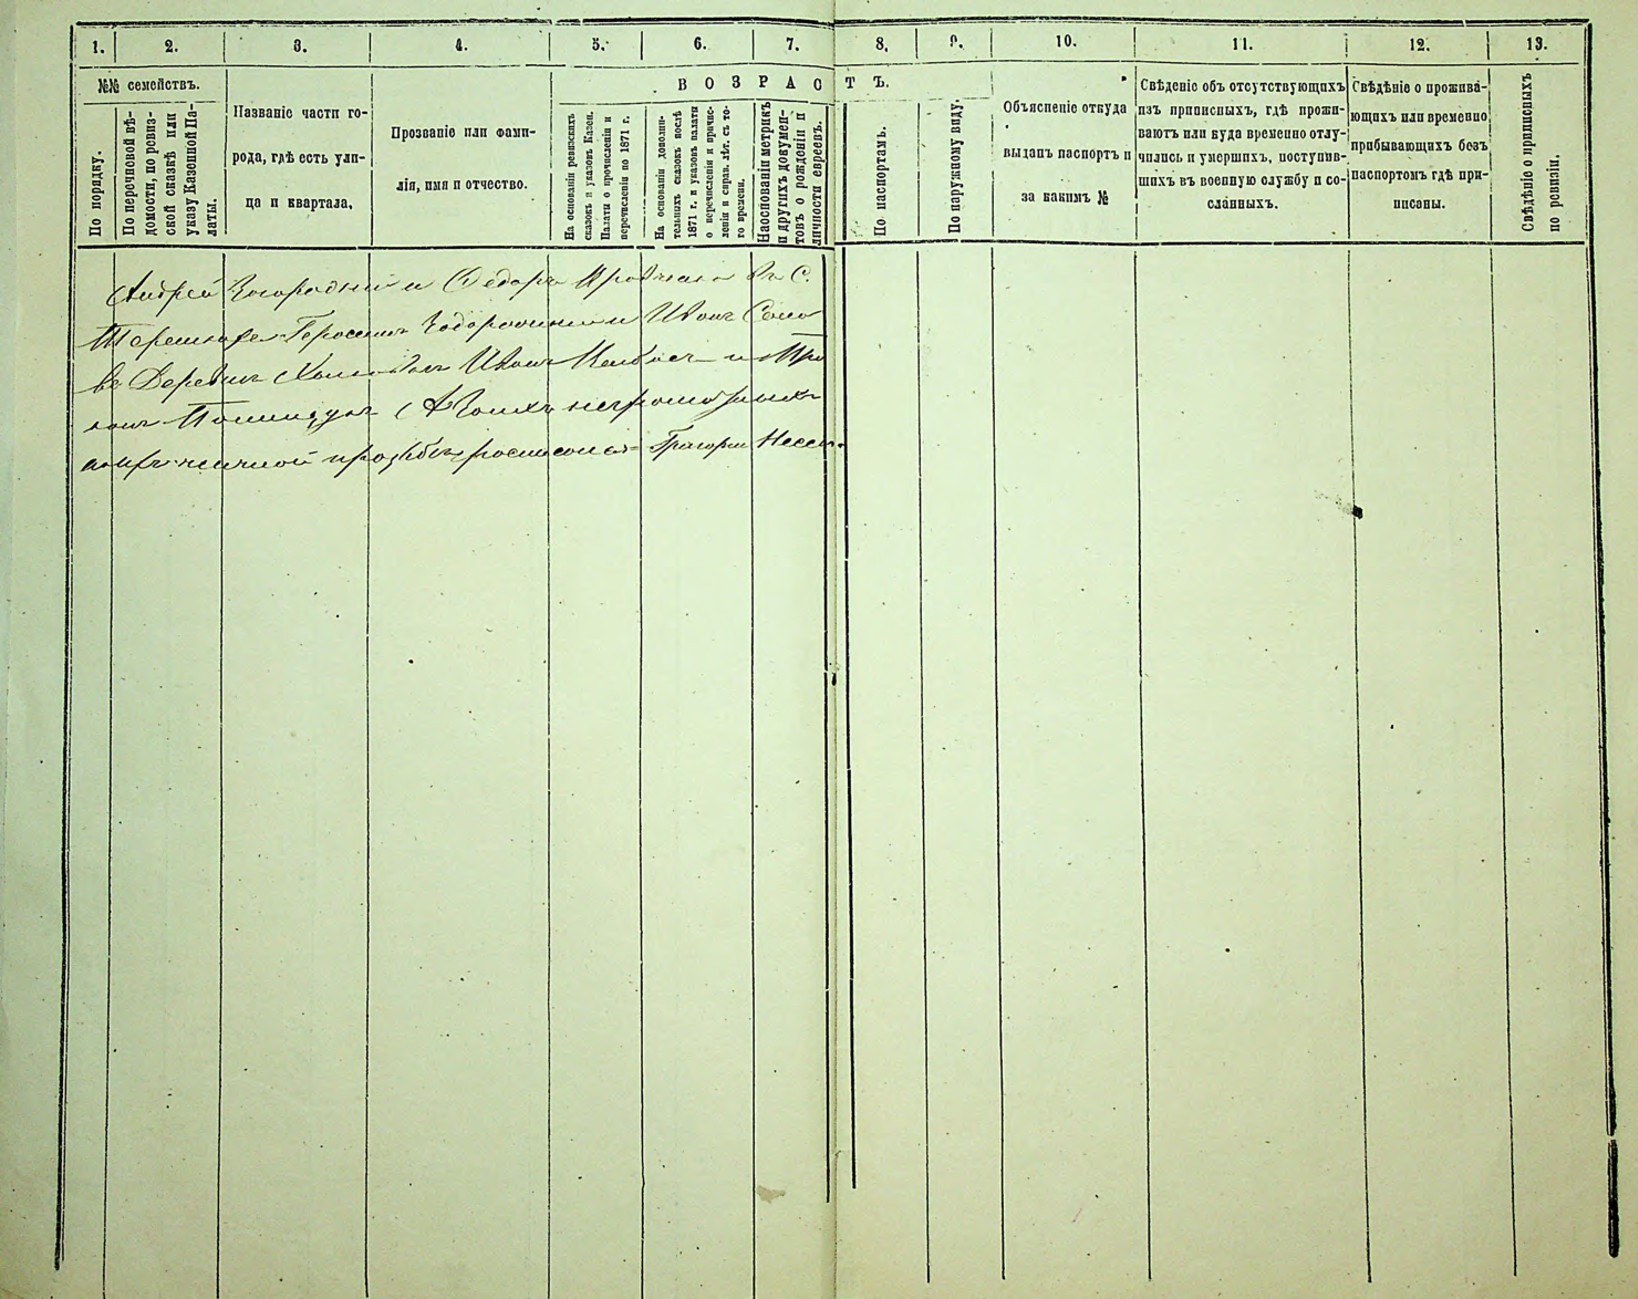 1. 2. 3. 4. 5. 6. 7. 8. 9. 10. 11. 12. 13.
№№ семействъ.
По порядку.
По перечневой вѣ-
домости, по ревиз-
ской сказкѣ или
указу Казенной Па-
латы.
Названіе части го-
рода, гдѣ есть ули-
ца и квартала.
Прозваніе или фами-
лія, имя и отчество.
ВОЗРАСТЪ.
На основаніи ревизскихъ
сказокъ и указовъ Казен.
Палаты о причисленіи и
перечисленіи по 1871 г.
На основаніи дополни-
тельныхъ сказокъ послѣ
1871 г. и указовъ палаты
о перечисленіи и причис-
леніи и справ. лѣт. съ то-
го времени.
На основаніи метрикъ
и другихъ докумен-
товъ о рожденіи и
личности евреевъ.
По паспортамъ.
По наружному виду.
Объясненіе откуда
выданъ паспортъ и
за какимъ №
Свѣденіе объ отсутствующихъ
изъ приписныхъ, гдѣ прожи-
ваютъ или куда временно отлу-
чились и умершихъ, поступив-
шихъ въ военную службу и со-
сланныхъ.
Свѣдѣніе о прожива-
ющихъ или временно
прибывающихъ безъ
паспортомъ гдѣ при-
писаны.
Свѣдѣніе о приписныхъ
по ревизіи.
Андрей Загородній и Федоръ въ С.
Иванъ
Деревни Иванъ и
неграмотныхъ
личной прозьбѣ росписался Григорий